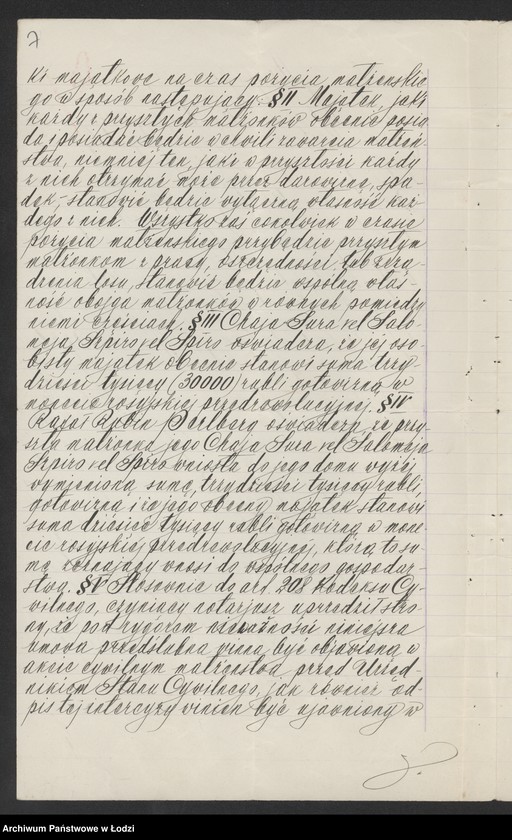 7
ki majątkowe na czas pożycia małżeńskie
go w sposób następujący: § II Majątek, jaki
każdy z przyszłych małżonków obecnie posia
da i posiadać będzie w chwili zawarcia małżeń
stwa, niemniej ten, jaki w przyszłości każdy
z nich otrzymać może przez darowiznę, spa-
dek, stanowić będzie wyłączną własność każ
dego z nich. Wszystko zaś cokolwiek w czasie
pożycia małżeńskiego przybędzie przyszłym
małżonkom z pracy, oszczędności lub zrzą-
dzenia losu, stanowić będzie wspólną włas-
ność obojga małżonków w równych pomiędzy
niemi częściach. § III Chaja Sura vel Salo-
meja Szpiro vel Spiro oświadcza, że jej oso-
bisty majątek obecnie stanowi suma trzy-
dzieści tysięcy (30000) rubli gotowizną w
monecie rosyjskiej przedrewolucyjnej. § IV
Rubin oświadcza, że przy-
szła małżonka jego Chaja Sura vel Salomeja
Szpiro vel Spiro wniosła do jego domu wyżej
wymienioną sumę trzydzieści tysięcy rubli
gotowizną i że jego obecny majątek stanowi
suma dziesięć tysięcy rubli gotowizną w mone
cie rosyjskiej przedrewolucyjnej, którą to su-
mę zeznający wnosi do wspólnego gospodar-
stwa. § V Stosownie do art. 208 Kodeksu Cy-
wilnego, czyniący notarjusz uprzedził stro-
ny, że pod rygorem nieważności niniejsza
umowa przedślubna winna być objawiona w
akcie cywilnym małżeństwa przed Urzęd-
nikiem Stanu Cywilnego, jak również od-
pis tej intercyzy winien być ujawniony w
Archiwum Państwowe w Łodzi